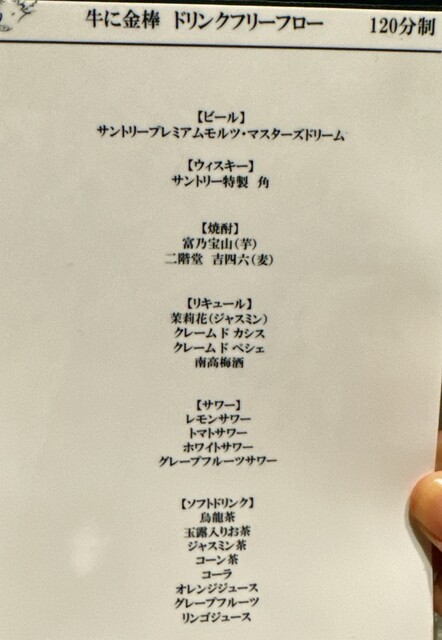 牛に金棒 ドリンクフリーフロー 120分制
【ビール】
サントリープレミアムモルツ・マスターズドリーム
【ウィスキー】
サントリー特製 角
【焼酎】
富乃宝山(芋)
二階堂 吉四六(麦)
【リキュール】
茉莉花(ジャスミン)
クレーム ド カシス
クレーム ド ペシェ
南高梅酒
【サワー】
レモンサワー
トマトサワー
ホワイトサワー
グレープフルーツサワー
【ソフトドリンク】
烏龍茶
玉露入りお茶
ジャスミン茶
コーン茶
コーラ
オレンジジュース
グレープフルーツ
リンゴジュース